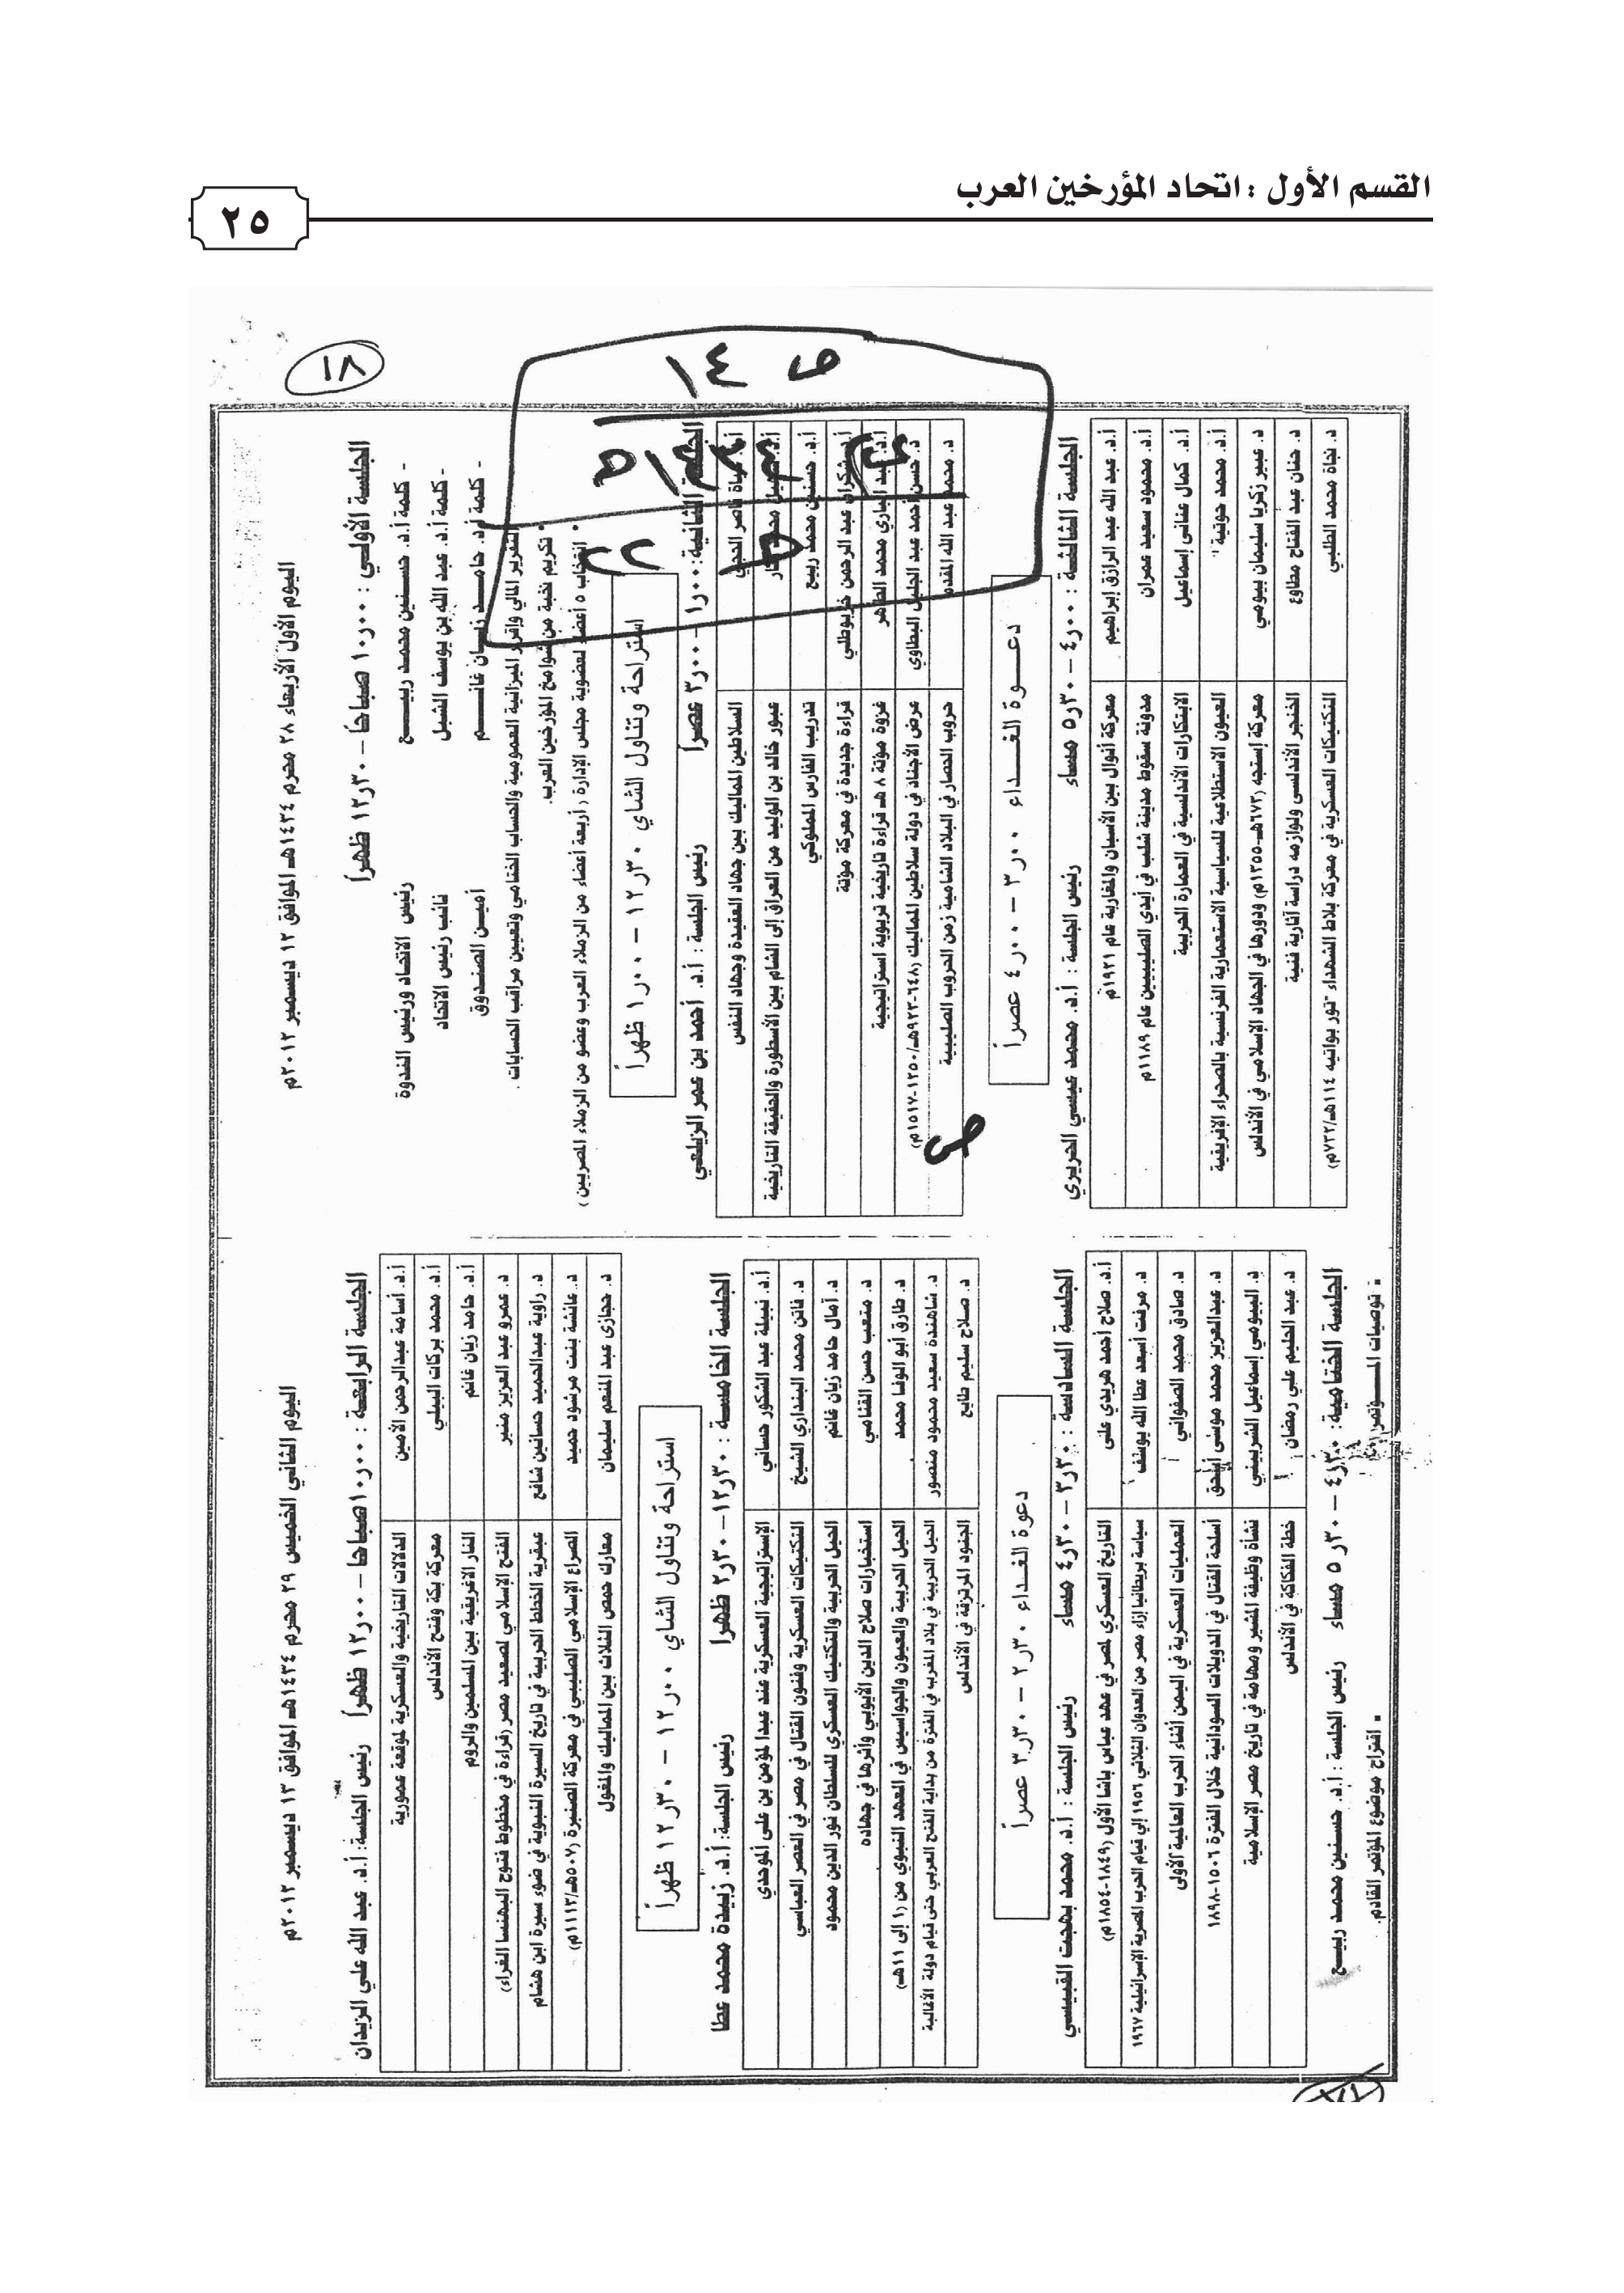 القسم الأول : اتحاد المؤرخين العرب
٢٥
١٨
ص ١٤
اليوم الأول الأربعاء ٢٨ محرم ١٤٣٤هـ الموافق ١٢ ديسمبر ٢٠١٢م
الجلسة الأولى : ١٠٫٠٠ صباحاً – ١٢٫٣٠ ظهراً
- كلمة أ.د. حسنين محمد ربيع رئيس الاتحاد ورئيس الندوة
- كلمة أ.د. عبد الله بن يوسف الشبل نائب رئيس الاتحاد
- كلمة أ.د. حامد زيان غانم أمين الصندوق
التقرير المالي وإقرار الميزانية العمومية والحساب الختامي وتعيين مراقب الحسابات .
• تكريم نخبة من شوامخ المؤرخين العرب.
• انتخاب ٥ أعضاء لعضوية مجلس الإدارة ( أربعة أعضاء من الزملاء العرب وعضو من الزملاء المصريين )
استراحة وتناول الشاي ١٢٫٣٠ – ١٫٠٠ ظهراً
الجلسة الثانية: ١٫٠٠ – ٣٫٠٠ عصراً رئيس الجلسة : أ.د. أحمد بن عمر الزيلعي
أ.د. حياة ناصر الحجي السلاطين المماليك بين جهاد العقيدة وجهاد النفس
عبور خالد بن الوليد من العراق إلى الشام بين الأسطورة والحقيقة التاريخية
أ.د. حسنين محمد ربيع تدريب الفارس المملوكي
أ.د. شكران عبد الرحمن خربوطلي قراءة جديدة في معركة مؤتة
غزوة مؤتة ٨ هـ قراءة تاريخية تربوية استراتيجية
د. حسن أحمد عبد الجليل البطاوي عرض الأجناد في دولة سلاطين المماليك (٦٤٨-٩٢٣هـ/١٢٥٠-١٥١٧م)
د. محمد عبد الله المقدم حروب الحصار في البلاد الشامية زمن الحروب الصليبية
ص
دعـوة الغـداء ٣٫٠٠ – ٤٫٠٠ عصراً
الجلسة الثالثة : ٤٫٠٠ – ٥٫٣٠ مساء رئيس الجلسة : أ.د. محمد عيسي الحريري
أ.د. عبد الله عبد الرازق إبراهيم معركة أنوال بين الأسبان والمغاربة عام ١٩٢١م
أ.د. محمود سعيد عمران مدونة سقوط مدينة شلب في أيدي الصليبيين عام ١١٨٩م
أ.د. كمال عناني إسماعيل الابتكارات الأندلسية في العمارة الحربية
أ.د. محمد حوتية العيون الاستطلاعية للسياسية الاستعمارية الفرنسية بالصحراء الإفريقية
د. عبير زكريا سليمان بيومي معركة إستجه (٦٧٣هـ-١٢٥٥م) ودورها في الجهاد الإسلامي في الأندلس
د. حنان عبد الفتاح مطاوع الخنجر الأندلسي ولوازمه دراسة آثارية فنية
د. نجاة محمد الطلبي التكتيكات العسكرية في معركة بلاط الشهداء -تور بواتيه ١١٤هـ/٧٣٢م)
اليوم الثاني الخميس ٢٩ محرم ١٤٣٤هـ الموافق ١٣ ديسمبر ٢٠١٢م
الجلسة الرابعة : ١٠٫٠٠ صباحاً – ١٢٫٠٠ ظهراً رئيس الجلسة: أ.د. عبد الله علي الزيدان
أ.د. أسامة عبدالرحمن الأمين الدلالات التاريخية والعسكرية لموقعة عمورية
أ.د. محمد بركات البيلي معركة بكة وفتح الأندلس
أ.د. حامد زيان غانم النار الاغريقية بين المسلمين والروم
د. عمرو عبد العزيز منير الفتح الإسلامي لصعيد مصر (قراءة في مخطوط فتوح البهنسا الغراء)
د. راوية عبدالحميد حسانين شافع عبقرية الخطط الحربية في تاريخ السيرة النبوية في ضوء سيرة ابن هشام
د. عائشة بنت مرشود حميد الصراع الإسلامي الصليبي في معركة الصنبرة (٥٠٧هـ/١١١٣م)
د. حجازى عبد المنعم سليمان معارك حمص الثلاث بين المماليك والمغول
استراحة وتناول الشاي ١٢٫٠٠ – ١٢٫٣٠ ظهراً
الجلسة الخامسة : ١٢٫٣٠ – ٢٫٣٠ ظهرا رئيس الجلسة: أ.د. زبيدة محمد عطا
أ.د. نبيلة عبد الشكور حساني الإستراتيجية العسكرية عند عبدا لمؤمن بن على الموحدي
د. فاتن محمد البنداري الشيخ التكتيكات العسكرية وفنون القتال في مصر في العصر العباسي
د. آمال حامد زيان غانم الحيل الحربية والتكتيك العسكري للسلطان نور الدين محمود
د. متعب حسن القثامي استخبارات صلاح الدين الأيوبي وأثرها في جهاده
د. طارق أبو الوفا محمد الحيل الحربية والعيون والجواسيس في العهد النبوي من (١ إلى ١١هـ)
د. شاهندة سعيد محمود منصور الحيل الحربية في بلاد المغرب في الفترة من بداية الفتح العربي حتى قيام دولة الأغالبة
د. صلاح سليم طايع الجنود المرتزقة في الأندلس
دعوة الغـداء ٢٫٣٠ – ٣٫٣٠ عصراً
الجلسة السادسة : ٣٫٣٠ – ٤٫٣٠ مساء رئيس الجلسة : أ.د. محمد بهجت القبيسي
أ.د. صلاح أحمد هريدي على التاريخ العسكري لمصر في عهد عباس باشا الأول (١٨٤٩-١٨٥٤م)
د. مرفت أسعد عطا الله يوسف سياسة بريطانيا إزاء مصر من العدوان الثلاثي ١٩٥٦ إلى قيام الحرب المصرية الإسرائيلية ١٩٦٧
د. صادق محمد الصفواني العمليات العسكرية في اليمن أثناء الحرب العالمية الأولى
د. عبدالعزيز محمد موسى إسحق أسلحة القتال في الدويلات السودانية خلال الفترة ١٥٠٦-١٨٩٨
د. البيومي إسماعيل الشربيني نشأة وظيفة المشير ومهامة في تاريخ مصر الإسلامية
د. عبد الحليم علي رمضان خطة الفكاكة في الأندلس
الجلسة الختامية: ٤٫٣٠ – ٥٫٣٠ مساء رئيس الجلسة : أ.د. حسنين محمد ربيع
▪ توصيات المـؤتمر ▪ اقتراح موضوع المؤتمر القادم.